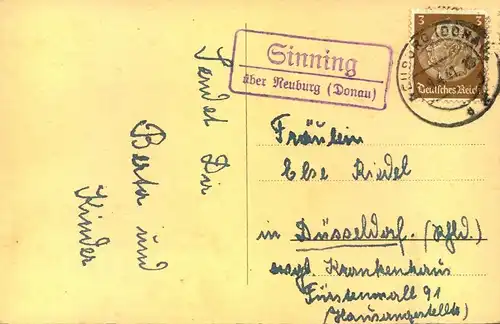 Sendet Dir
Berta und
Kinder
Sinning
über Neuburg (Donau)
3
3
Deutsches Reich
NEUBURG (DONAU)
Fräulein
Else Riedel
in Düsseldorf. (Rhld.)
evgl. Krankenhaus
Fürstenwall 91
(Hausangestellte)